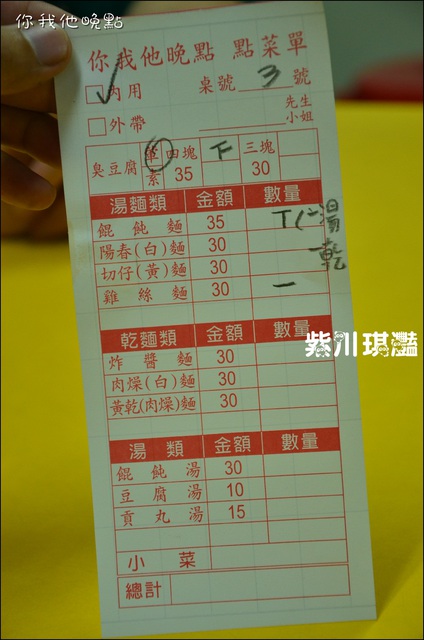 你我他晚點
你我他晚點 點菜單
內用 桌號 3 號
外帶 先生
小姐
臭豆腐 葷 四塊 下 三塊
素 35 30
湯麵類 金額 數量
餛飩麵 35 T(一湯
陽春(白)麵 30 一乾
切仔(黃)麵 30
雞絲麵 30 一
乾麵類 金額 數量
炸醬麵 30
肉燥(白)麵 30
黃乾(肉燥)麵 30
紫川琪灩
湯類 金額 數量
餛飩湯 30
豆腐湯 10
貢丸湯 15
小菜
總計